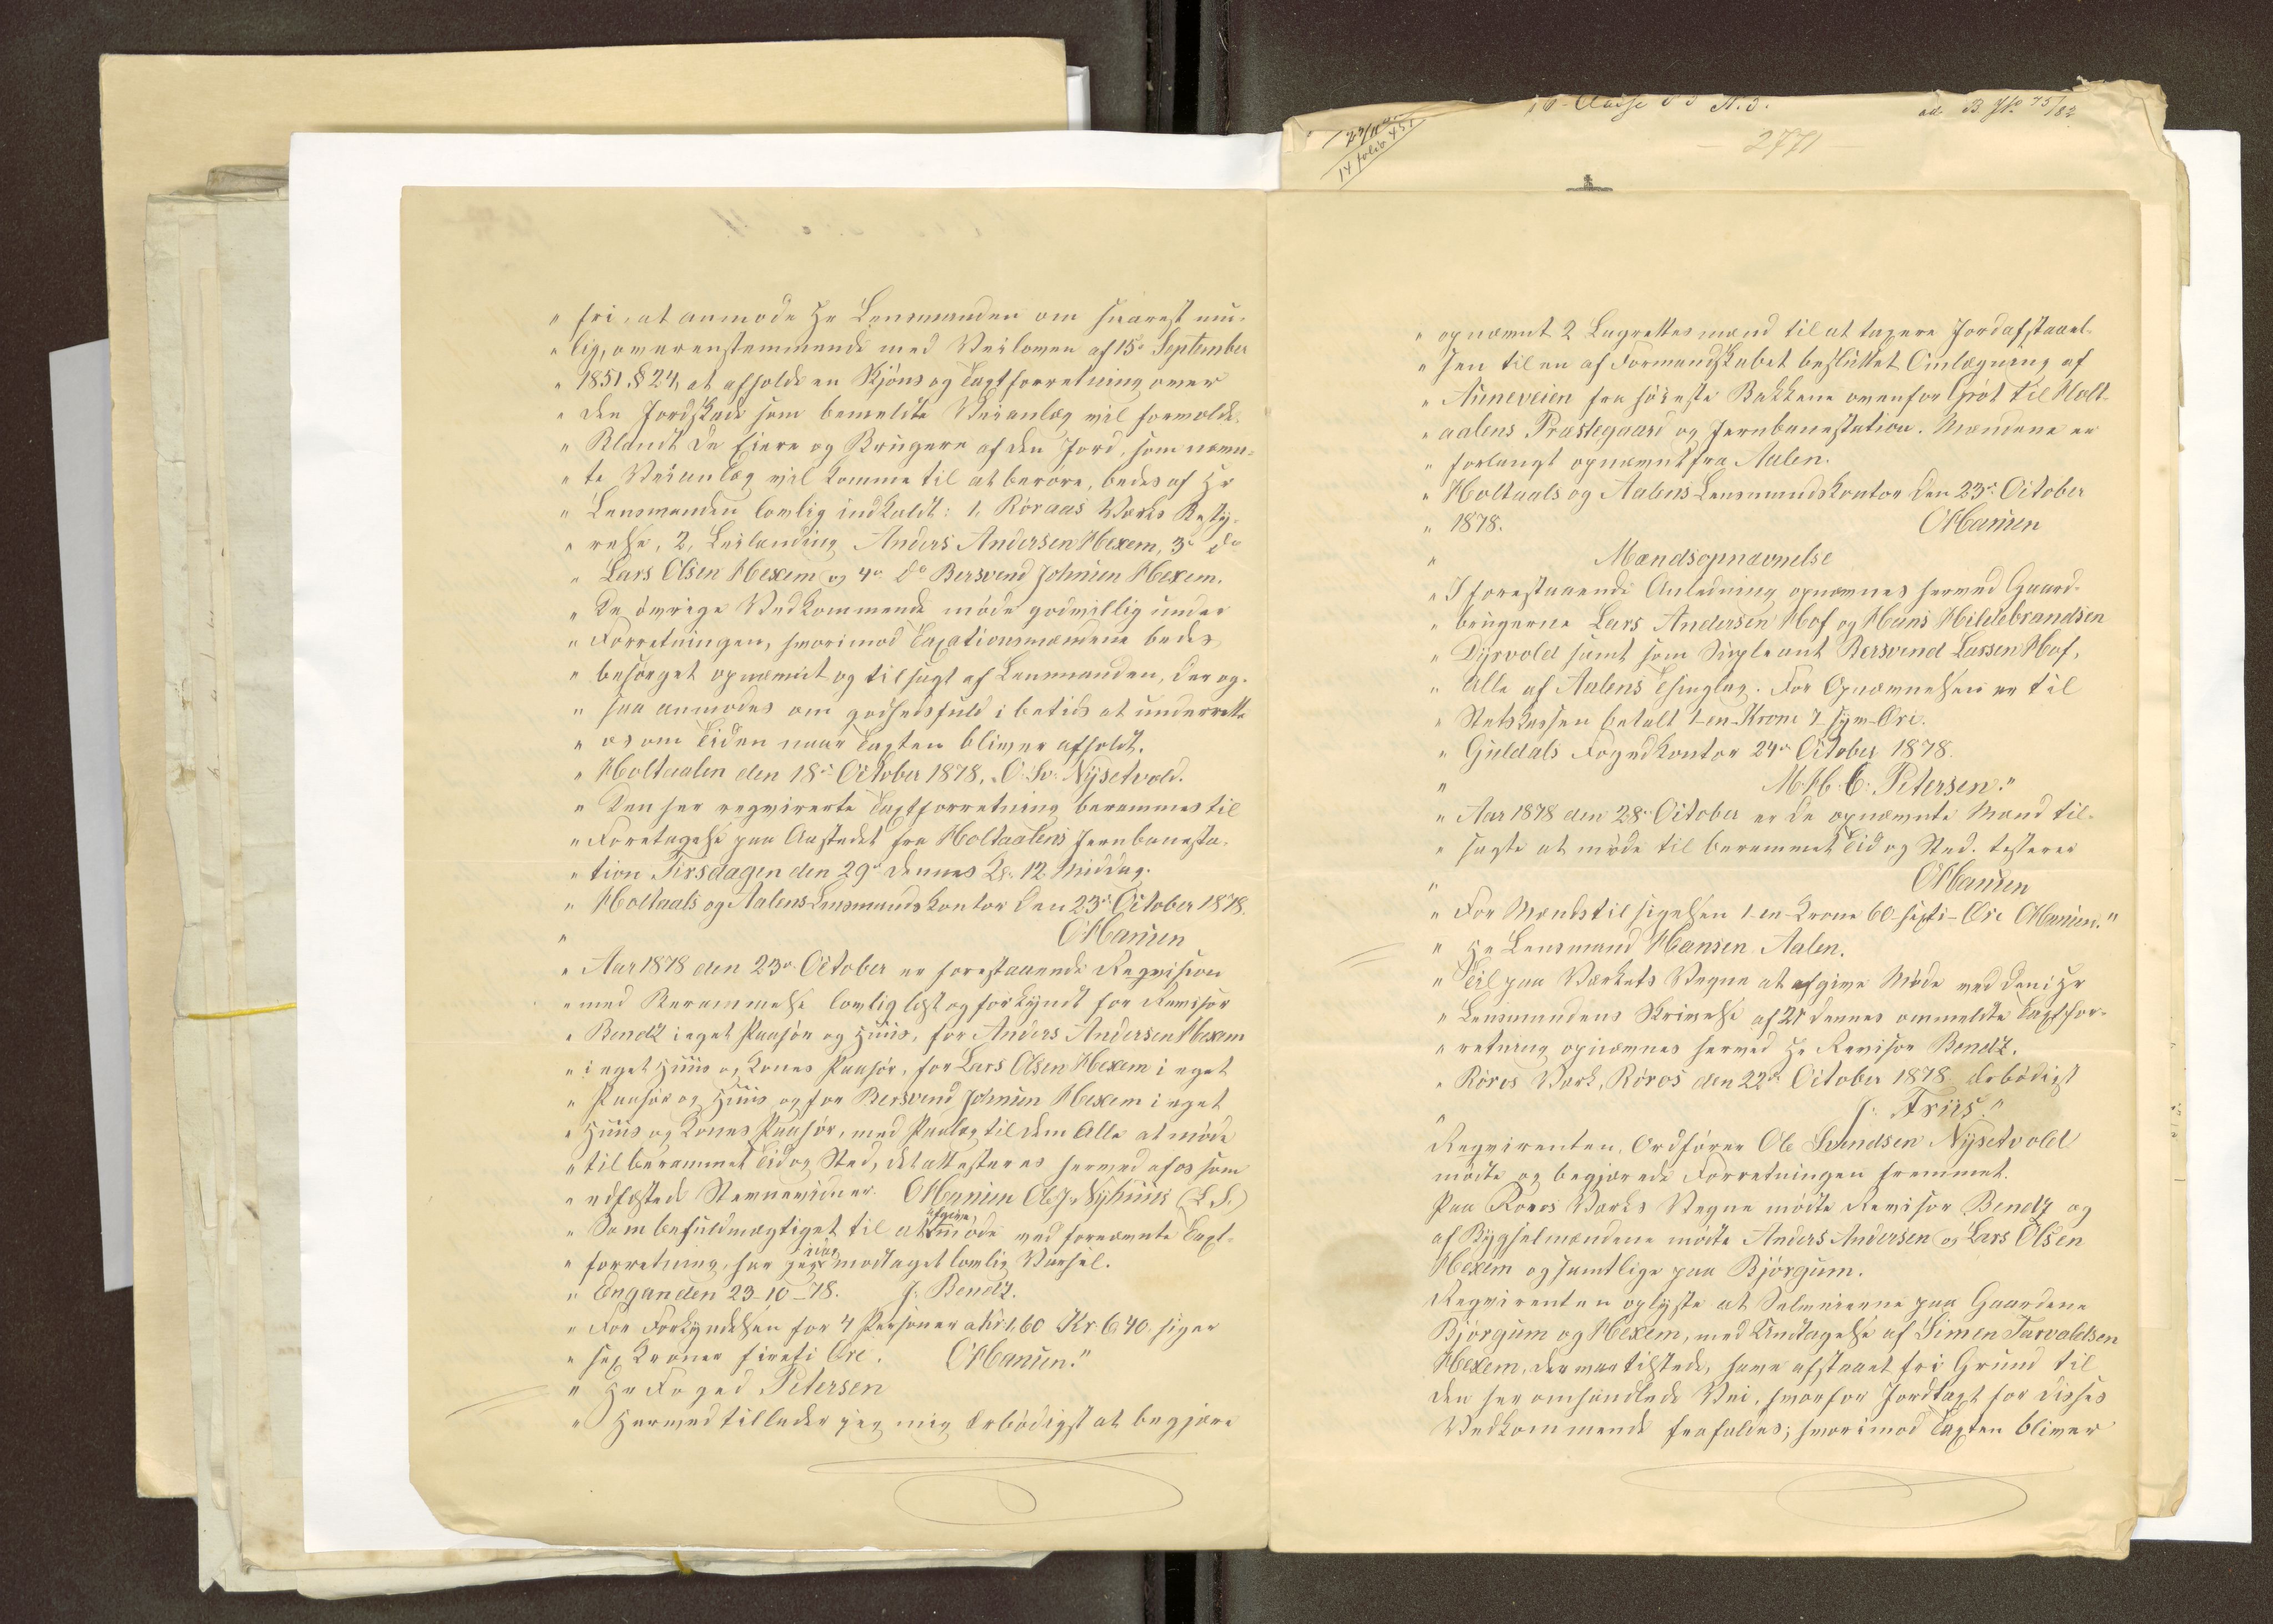 " fri, at anmode Hr Lensmanden om snarest mu-
" lig, overensstemmende med Veiloven af 15de September
" 1851 § 24, at afholde en Skjöns og Taxtforretning over
" den Jordskade som bemeldte Veianlæg vil forvolde.
" Blandt de Eiere og Brugere af den Jord, som nævn-
" te Veianlæg vil komme til at beröre, bedes af Hr
" Lensmanden lovlig indkaldt: 1, Röraas Værks Besty-
" relse, 2, Leilænding Anders Andersen Hexem, 3o do
" Lars Olsen Hexem og 4o do Bersvend Johnsen Hexem.
" De övrige Vedkommende möde godvillig under
" Forretningen, hvorimod Taxationsmændene bedes
" besörget opnævnt og tilsagt af Lensmanden, der og-
" saa anmodes om godhedsfuld i betids at underrette
" os om Tiden naar Taxten bliver afholdt.
" Holtaalen den 18de October 1878. O. Sv. Nysetvold.
" Den her reqvirerte Taxtforretning berammes til
" Foretagelse paa Aastedet fra Holtaalens Jernbanesta-
" tion Tirsdagen den 29de dennes Kl. 12 Middag.
" Holtaals og Aalens Lensmandskontor den 23de October 1878.
" OHansen
" Aar 1878 den 23de October er forestaaende Reqvisition
" med Berammelse lovlig læst og forkyndt for Revisor
" Bendz i eget Paahör og Huus, for Anders Andersen Hexem
" i eget Huus og Kones Paahör, for Lars Olsen Hexem i eget
" Paahör og Huus og for Bersvend Johnsen Hexem i eget
" Huus og Kones Paahör, med Paalæg til dem Alle at möde
" til berammet Tid og Sted, det attesteres herved af os som
" edfæstede Stevnevidner. OHansen Ole J. Nyhuus (L. S.)
" Som befuldmægtiget til at afgive Möde ved forenævnte Taxt-
" forretning, har jeg idag modtaget lovlig Varsel.
" Engan den 23-10-78. J. Bendz.
" For Forkyndelsen for 4 Personer a Kr 1,60 Kr. 6,40 siger
" sex Kroner firti Öre. OHansen."
" Hr Foged Petersen
" Herved tillader jeg mig ærbödigst at begjære
27/11
14 folio 451
ad. B. No 75/82
- 2771 -
" opnævnt 2 Lagrettesmænd til at taxere Jordafstaael-
" sen til en af Formandskabet besluttet Omlægning af
" Auneveien fra söreste Bakkene ovenfor Gröt til Holt-
" aalens Præstegaard og Jernbanestation. Mændene er
" forlangt opnævnt fra Aalen.
" Holtaals og Aalens Lensmandskontor den 23de October
" 1878. OHansen
" Mændsopnævnelse
" I forestaaende Anledning opnævnes herved Gaard-
" brugerne Lars Andersen Hof og Hans Hildebrandsen
" Dyrvold samt som Supleant Bersvend Larsen Hof,
" Alle af Aalens Thinglag. For Opnævnelsen er til
" Statskassen betalt 1 - en - Krone 7 - syv - Öre.
" Guldals Fogedkontor 24de October 1878.
" M. H. C. Petersen."
" Aar 1878 den 28de October er de opnævnte Mænd til-
" sagte at möde til berammet Tid og Sted. testerer
" OHansen
" For Mændstilsigelsen 1 - en - Krone 60 - sexti - Öre OHansen."
" Hr Lensmand Hansen Aalen.
" Til paa Værkets Vegne at afgive Möde ved den i Hr
" Lensmandens Skrivelse af 21 dennes ommeldte Taxtfor-
" retning opnævnes herved Hr Revisor Bendz.
" Röros Værk, Röros den 22de October 1878 Ærbödigst
" J. Friis."
Reqvirenten, Ordförer Ole Svendsen Nysetvold
mödte og begjærede Forretningen fremmet.
Paa Röros Værks Vegne mödte Revisor Bendz og
af Bygselmændene mödte Anders Andersen og Lars Olsen
Hexem og samtlige paa Björgum.
Reqvirenten oplyste at Selveierne paa Gaardene
Björgum og Hexem, med Undtagelse af Simen Tarvaldsen
Hexem, der var tilstede, have afstaaet fri Grund til
den her omhandlede Vei, hvorfor Jordtaxt for disses
Vedkommende frafaldes; hvorimod Taxten bliver